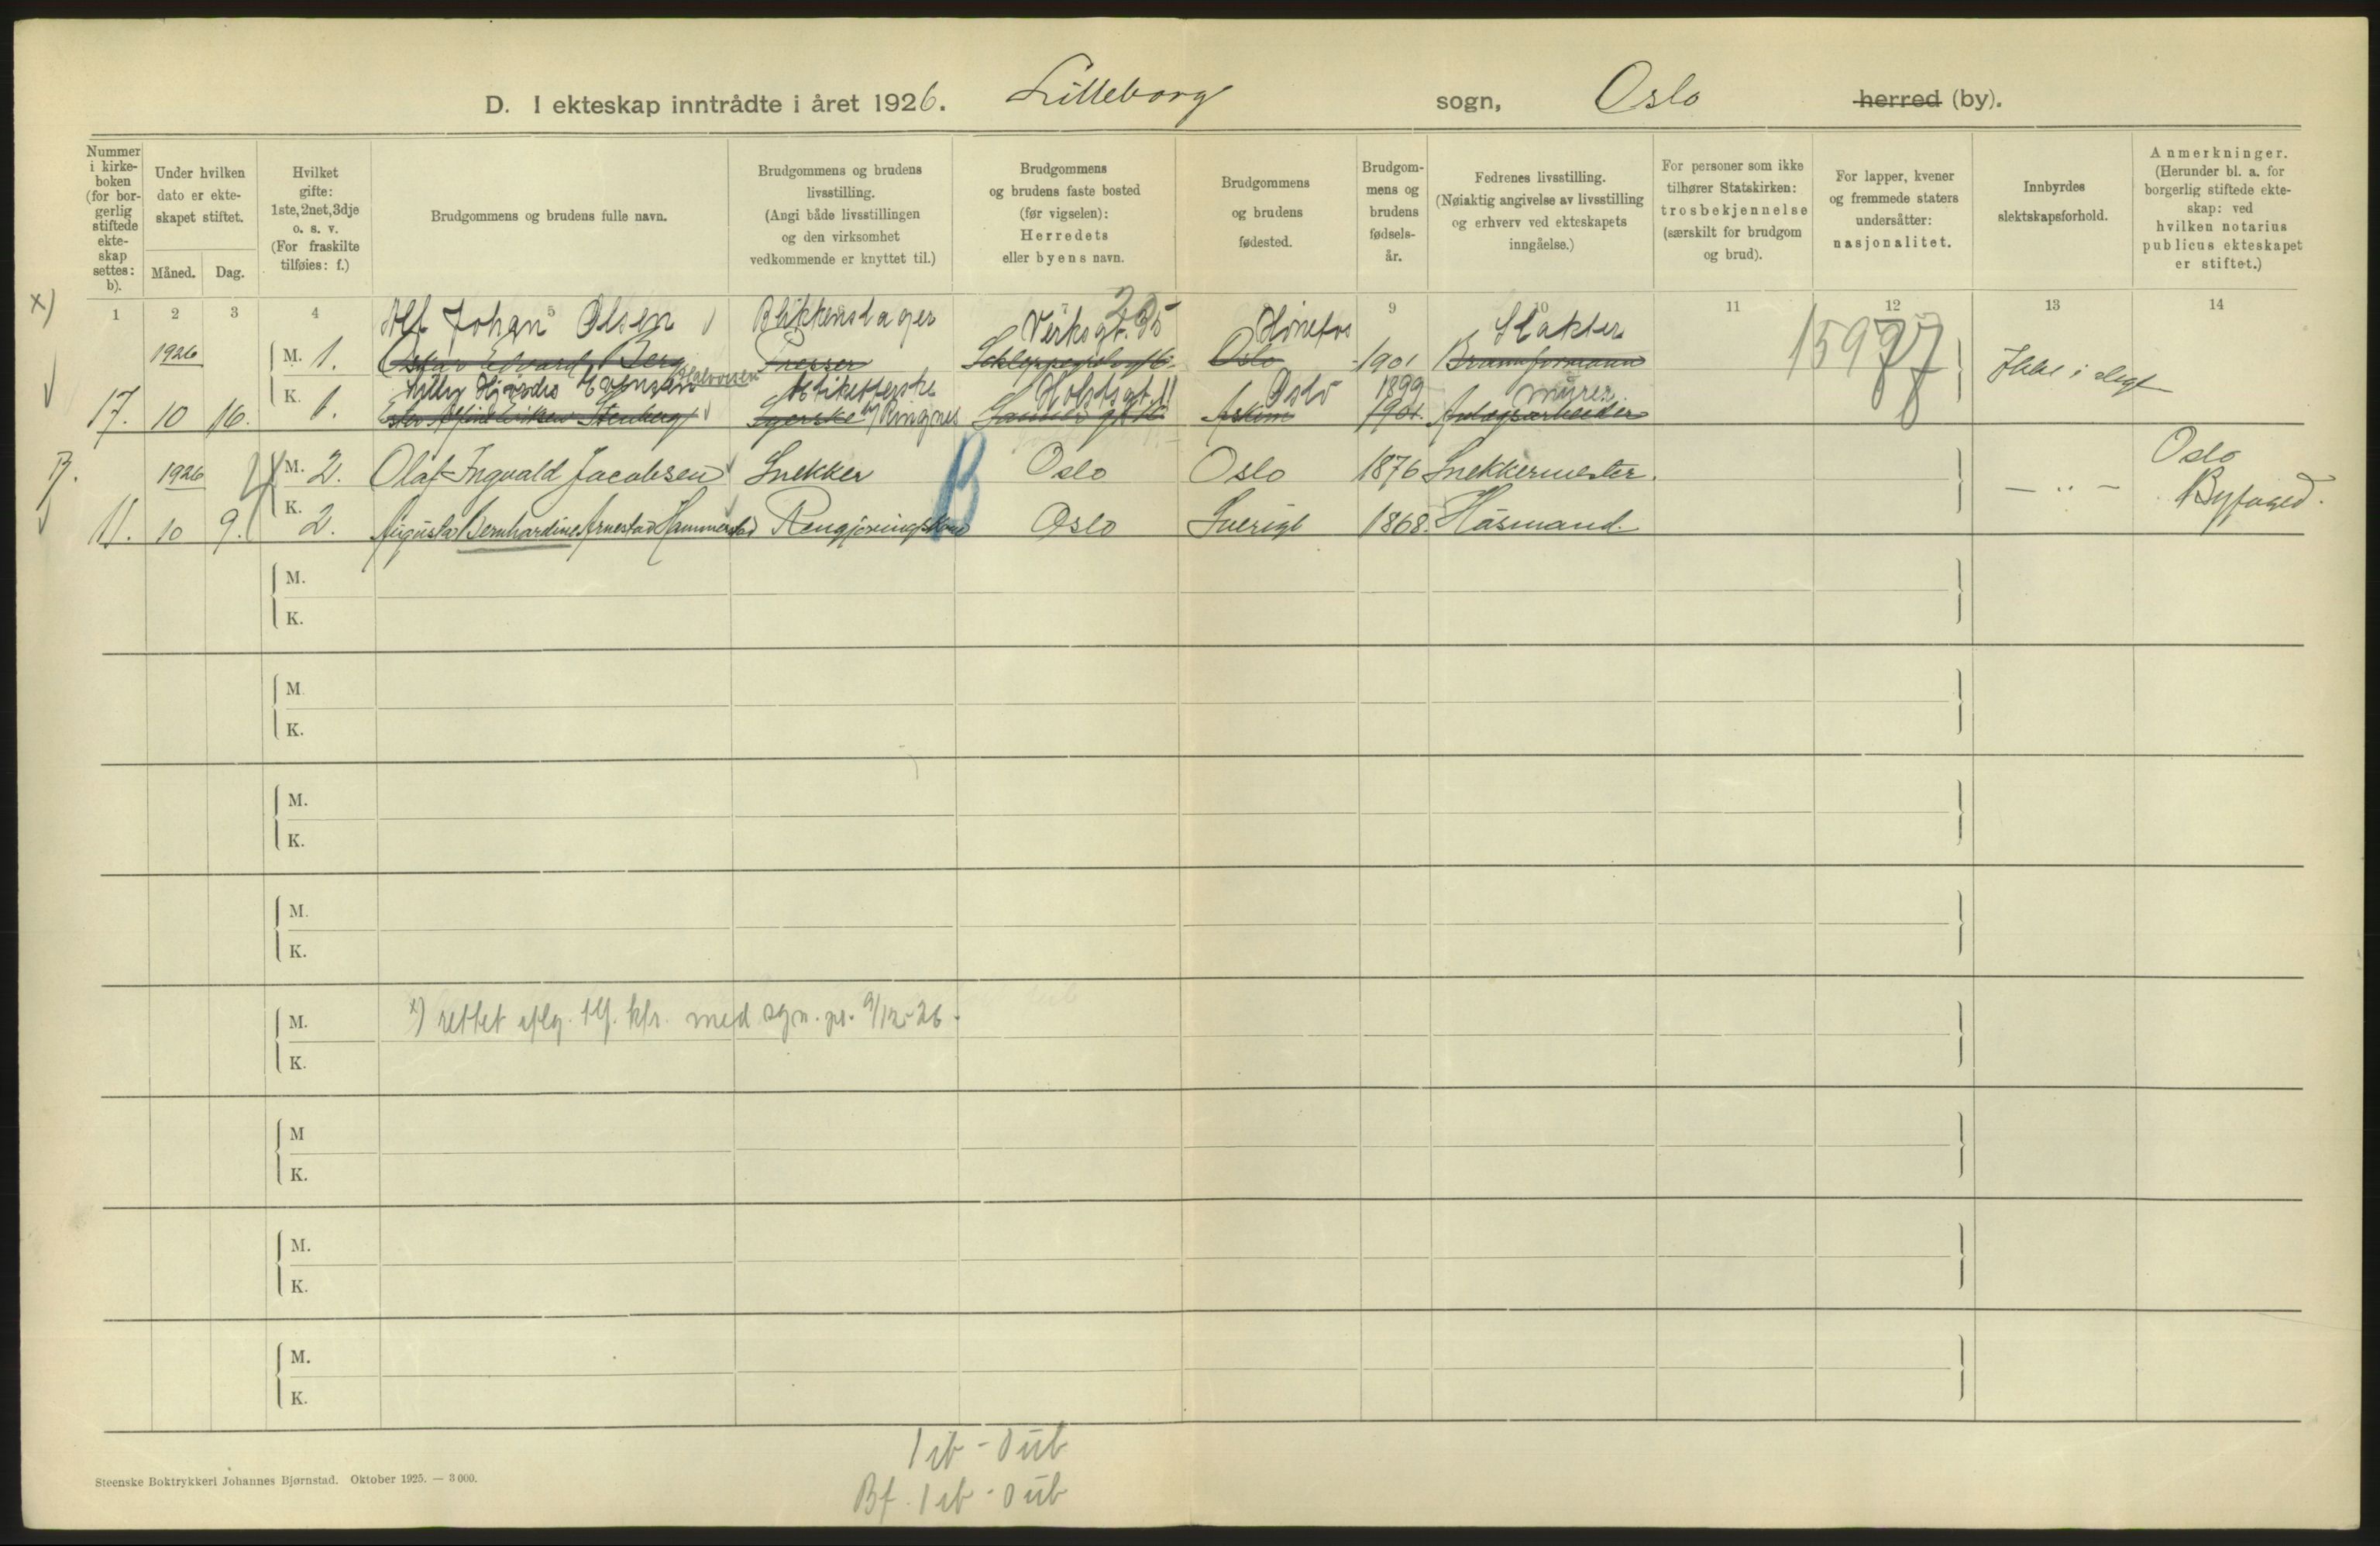 D. I ekteskap inntrådte i året 1926. Lilleborg sogn, Oslo herred (by).
Nummer i kirke-boken (for bor-gerlig stiftede ekte-skap settes: b).
Under hvilken dato er ekte-skapet stiftet.
Måned. Dag.
Hvilket gifte: 1ste, 2net, 3dje o. s. v. (For fraskilte tilføies: f.)
Brudgommens og brudens fulle navn.
Brudgommens og brudens livsstilling. (Angi både livsstillingen og den virksomhet vedkommende er knyttet til.)
Brudgommens og brudens faste bosted (før vigselen): Herredets eller byens navn.
Brudgommens og brudens fødested.
Brudgom-mens og brudens fødsels-år.
Fedrenes livsstilling. (Nøiaktig angivelse av livsstilling og erhverv ved ekteskapets inngåelse.)
For personer som ikke tilhører Statskirken: trosbekjennelse (særskilt for brudgom og brud).
For lapper, kvener og fremmede staters undersåtter: nasjonalitet.
Innbyrdes slektskapsforhold.
Anmerkninger. (Herunder bl. a. for borgerlig stiftede ekte-skap: ved hvilken notarius publicus ekteskapet er stiftet.)
1 2 3 4 5 9 10 11 12 13 14
x) Alf Johan Olsen Blikkenslager Verksgt. Hønefos Slakter 15977
1926 M. 1. Oskar Edvard Berg Presser Oslo 1901 Brannformann Ikke i slegt
Lilly Hjørdis Halvorsen Etiketterske Ringnes Holstsgt. 11 Oslo 1899 Murer
17. 10 16. K. 1. Syerske Askim 1901. Anlegsarbeider
B. 1926 M. 2. Olaf Ingvald Jacobsen Snekker B Oslo Oslo 1876 Snekkermester. — " — Oslo Byfoged.
11. 10 9. K. 2. Augusta Bernhardine Arnestad Hammerstad Rengjøringskone Oslo Sverige 1868. Husmand.
M.
K.
M.
K.
M.
K.
M.
K.
M. x) rettet eflg. tlf. kfr. med sgn. pr. 9/12-26.
K.
M
K.
M.
K.
M.
K.
1 ib - 0 ub
Bf. 1 ib - 0 ub
Steenske Boktrykkeri Johannes Bjørnstad. Oktober 1925. — 3 000.